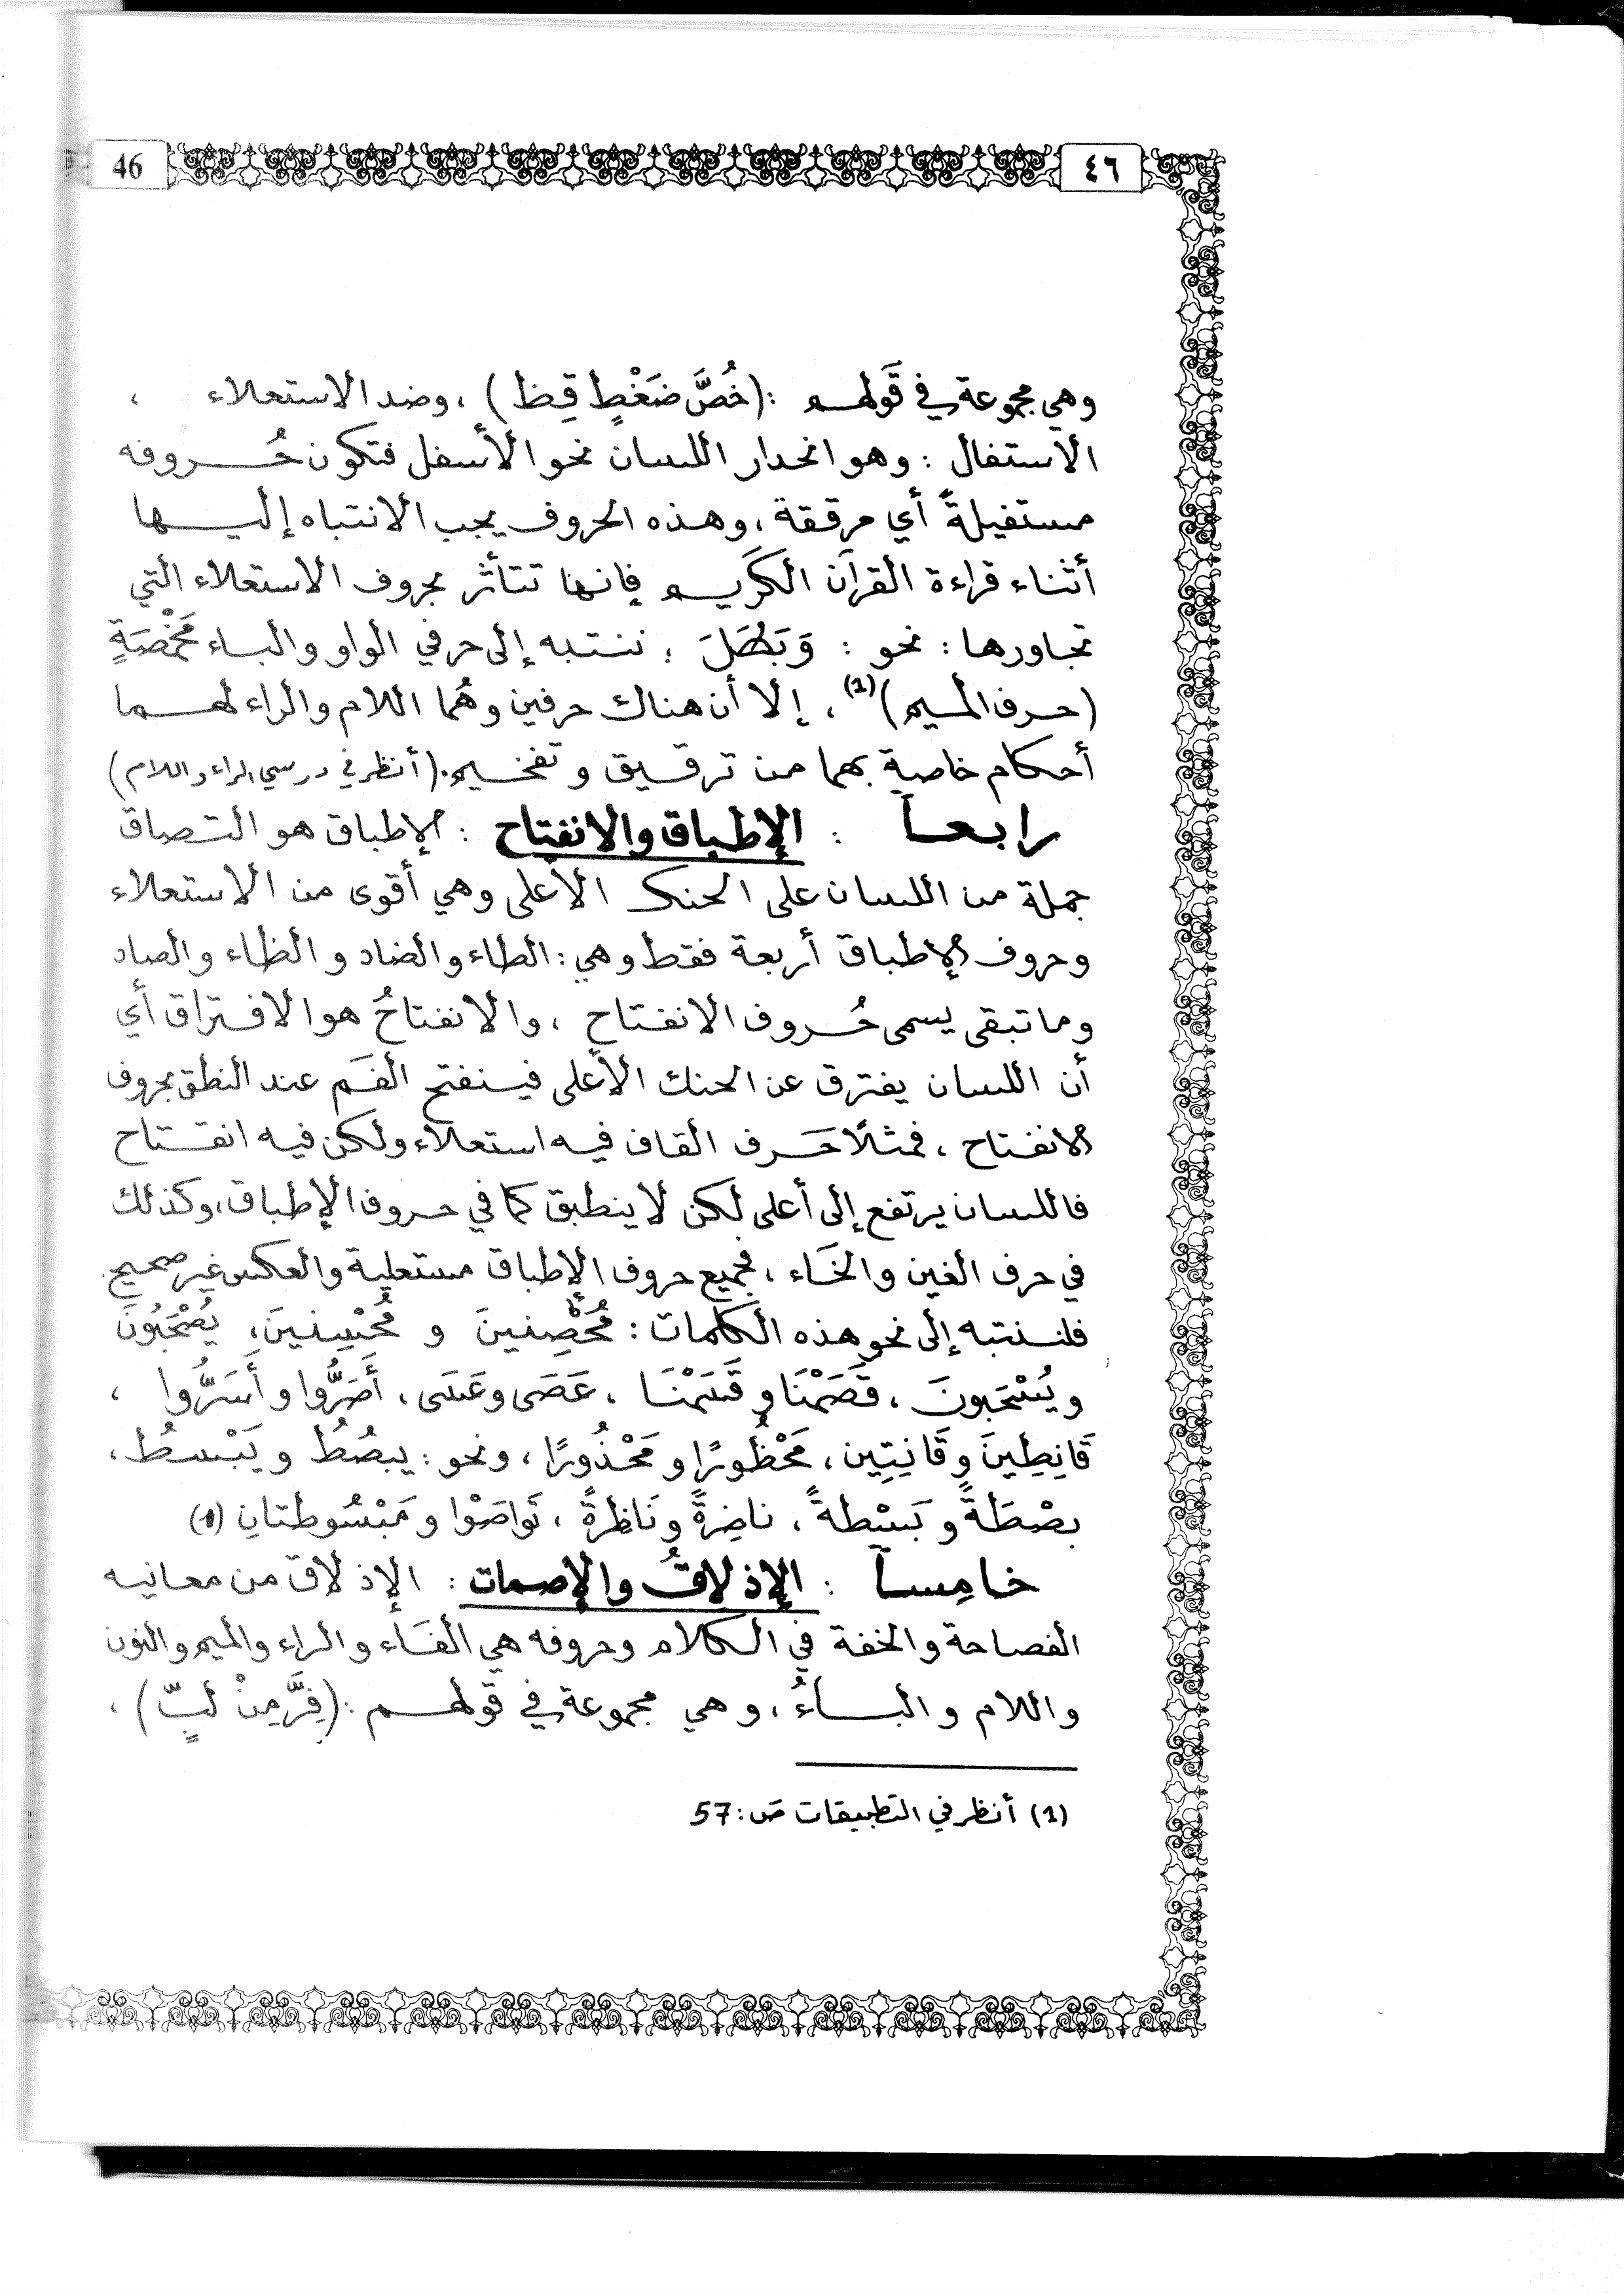 ٤٦ 46
وهي مجموعة في قَولهم : (خُصَّ ضَغْطٍ قِظ) ، وضد الاستعلاء ،
الاستفال : وهو انحدار اللسان نحو الأسفل فتكون حُروفه
مستفيلةً أي مرققة ، وهذه الحروف يجب الانتباه إليها
أثناء قراءة القرآن الكَريم فإنها تتأثر بحروف الاستعلاء التي
تجاورها : نحو : وَبَطَلَ ؛ ننتبه إلى حرفي الواو والباء مَخْمَصَةٍ
(حرف الميم) (1) ، إلا أن هناك حرفين وهُما اللام والراء لهما
أحكام خاصة بهما من ترقيق وتفخيم. (أنظر في درسي الراء واللام)
رابعاً : الإطباق والانفتاح : الإطباق هو التصاق
جملة من اللسان على الحنك الأعلى وهي أقوى من الاستعلاء
وحروف الإطباق أربعة فقط وهي : الطاء والضاد والظاء والصاد
وما تبقى يسمى حُروف الانفتاح ، والانفتاحُ هو الافتراق أي
أن اللسان يفترق عن الحنك الأعلى فينفتح الفَم عند النطق بحروف
الانفتاح ، فمثلًا حَرف القاف فيه استعلاء ولكن فيه انفتاح
فاللسان يرتفع إلى أعلى لكن لا ينطبق كما في حروف الإطباق ، وكذلك
في حرف الغين والخَاء ، فجميع حروف الإطباق مستعلية والعكس غير صحيح
فلننتبه إلى نحو هذه الكلمات : مُحْصِنينَ و مُحْسِنينَ ، يُصْحَبُونَ
ويُسْحَبونَ ، قَصَمْنَا وقَسَمْنَا ، عَصَى وعَسَى ، أَصَرُّوا وأَسَرُّوا ،
قَانِطِينَ وقَانِتِين ، مَحْظُورًا ومَحْذُورًا ، ونحو : يبصُطُ ويَبْسطُ ،
بصْطَةً وبَسْطةً ، ناضِرةً ونَاظِرةً ، تَواصَوْا ومَبْسُوطتانِ (1)
خامِساً : الإذلاقُ والإصمات : الإذلاق من معانيه
الفصاحة والخفة في الكلام وحروفه هي الفَاء والراء والميم والنون
واللام والباءُ ، وهي مجموعة في قولهم : (فِرَّ مِنْ لُبٍّ) ،
(1) أنظر في التطبيقات ص : 57